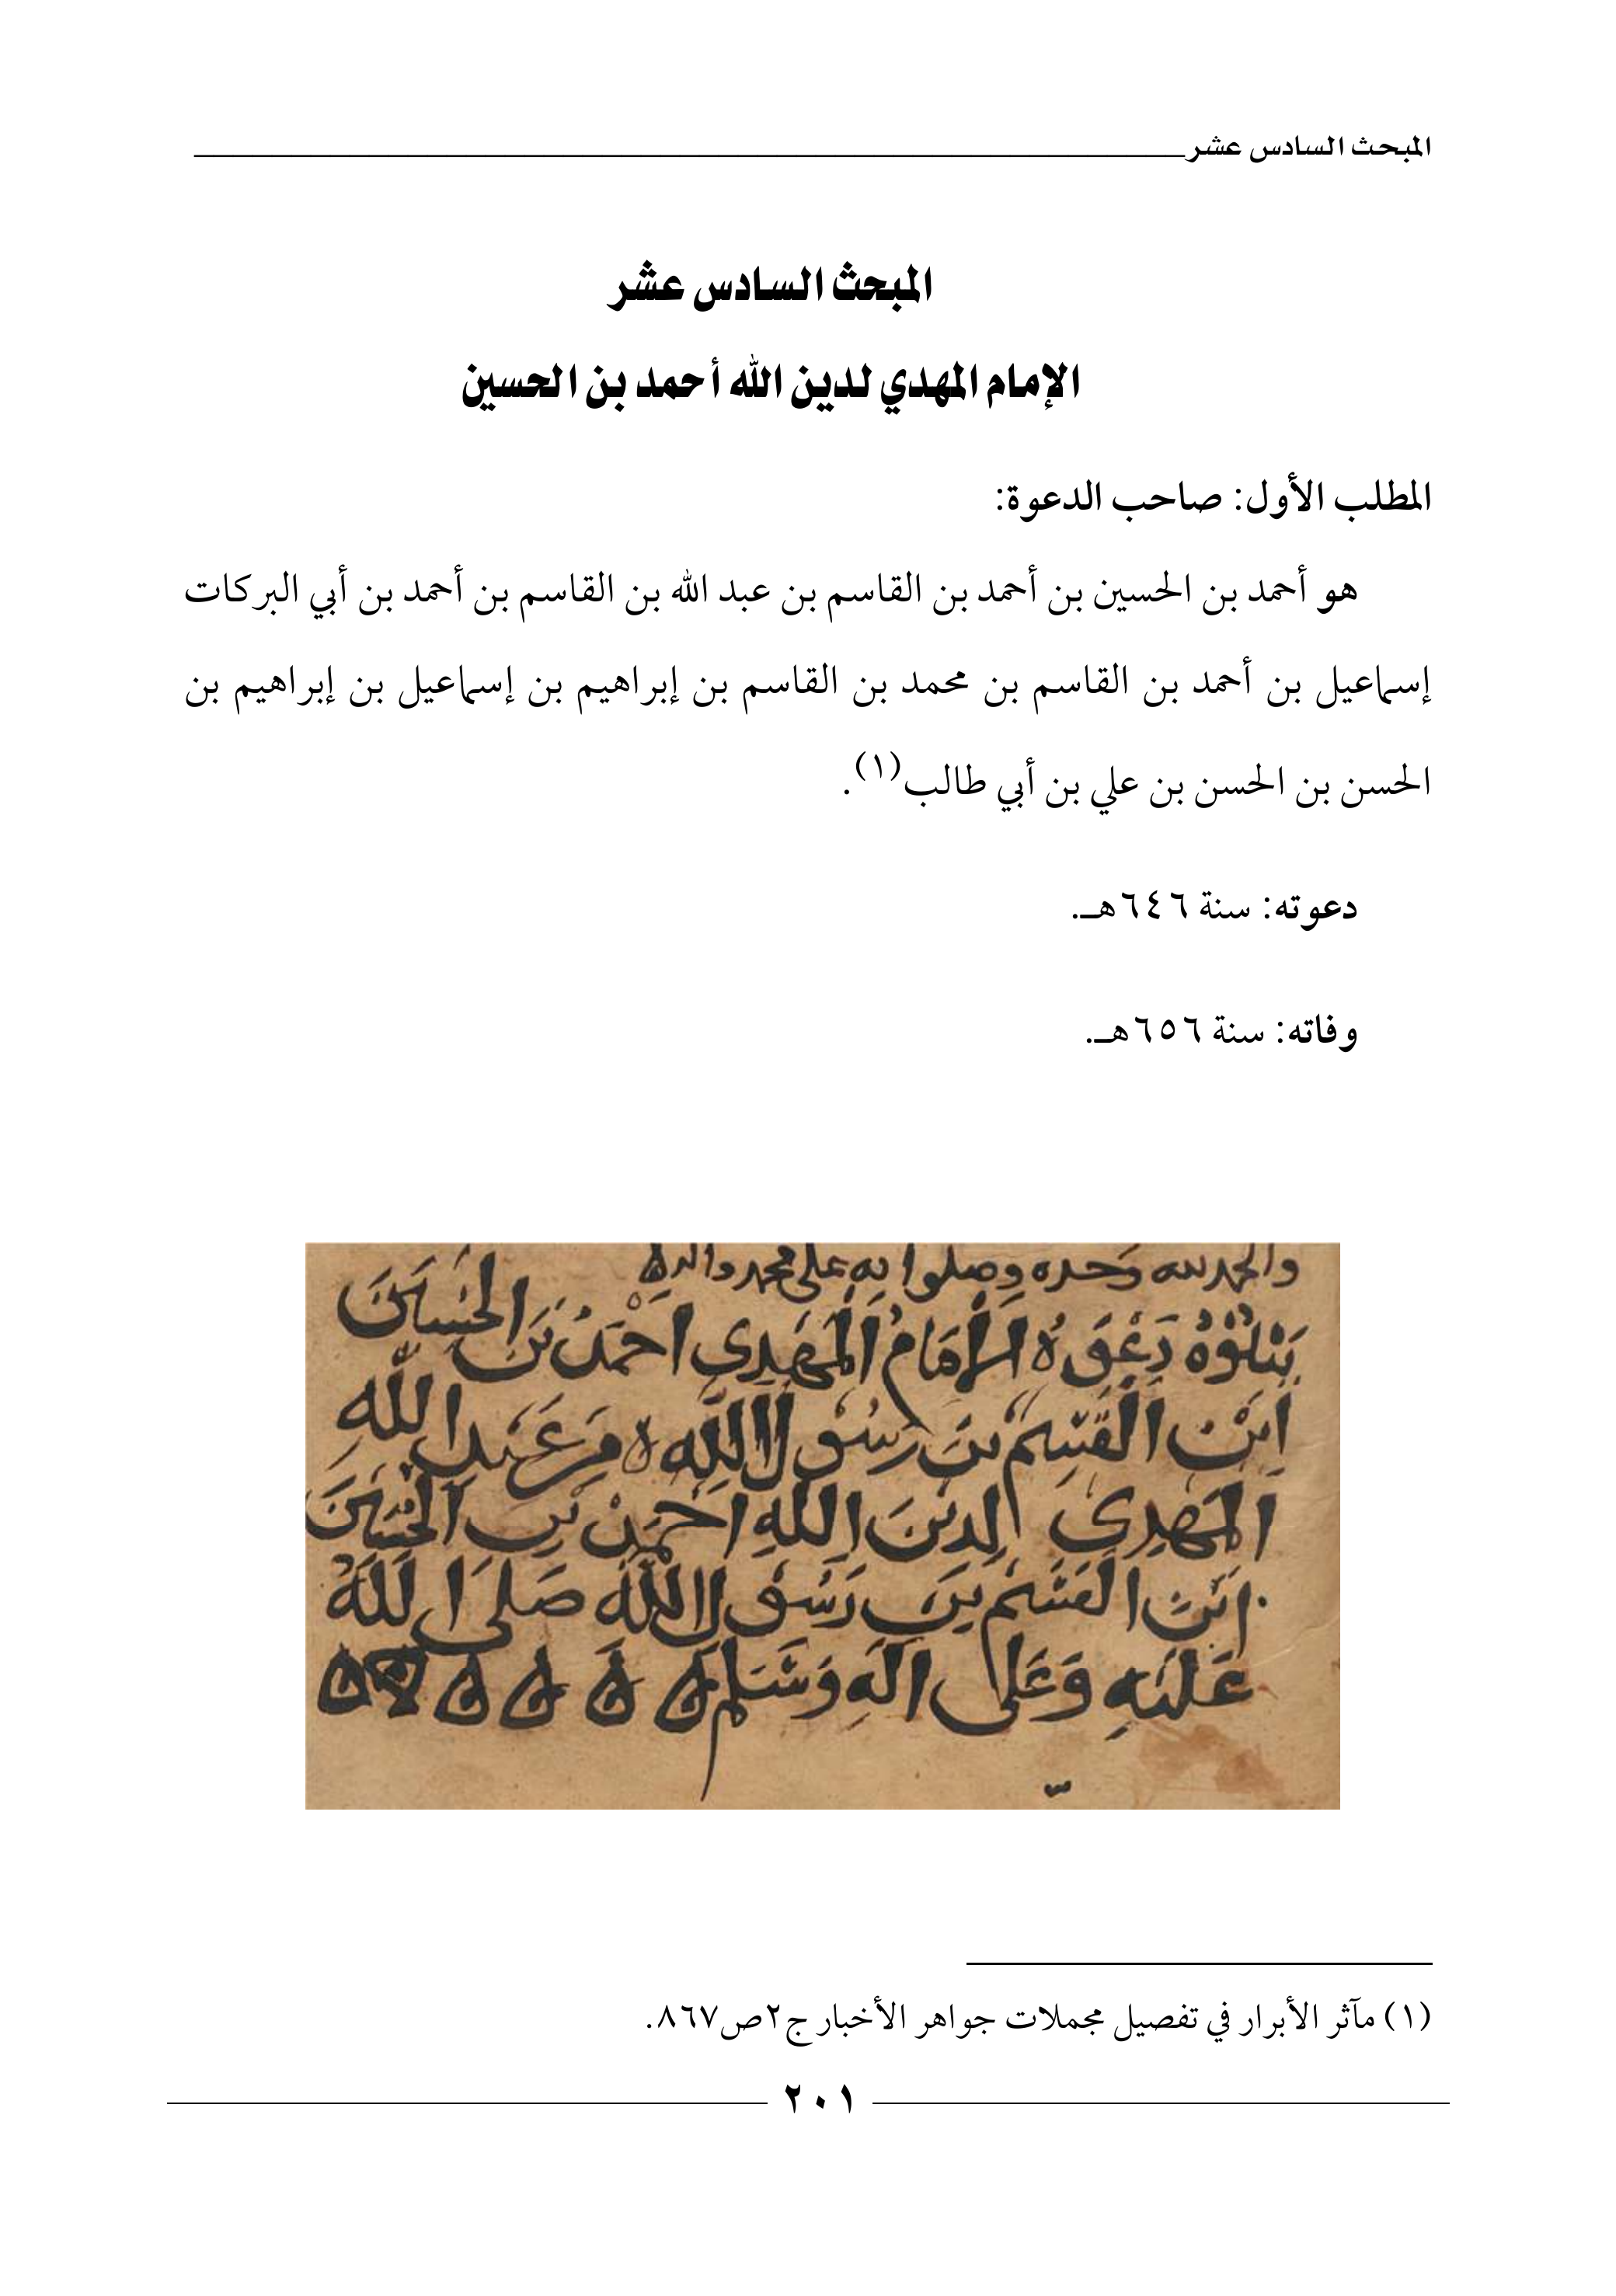 المبحث السادس عشر
المبحث السادس عشر
الإمام المهدي لدين الله أحمد بن الحسين
المطلب الأول: صاحب الدعوة:
هو أحمد بن الحسين بن أحمد بن القاسم بن عبد الله بن القاسم بن أحمد بن أبي البركات
إسماعيل بن أحمد بن القاسم بن محمد بن القاسم بن إبراهيم بن إسماعيل بن إبراهيم بن
الحسن بن الحسن بن علي بن أبي طالب(١).
دعوته: سنة ٦٤٦هـ.
وفاته: سنة ٦٥٦هـ.
والحمد لله وحده وصلواته على محمد واله
يتلوه دعوه الإمام المهدي احمد بن الحسين
ابن القسم بن رسول الله من عبد الله
المهدي لدين الله احمد بن الحسين
ابن القسم بن رسول الله صلى الله
عليه وعلى اله وسلم
(١) مآثر الأبرار في تفصيل مجملات جواهر الأخبار ج٢ص٨٦٧.
٢٠١